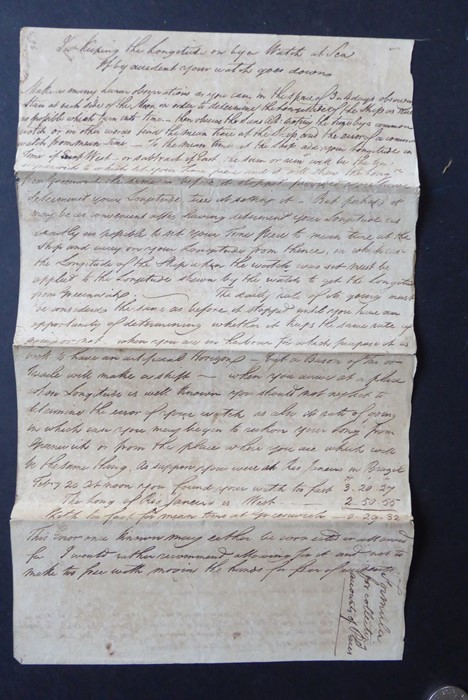 For keeping the Longitude on by a Watch at Sea
If by accident your watch goes down
Make as many lunar observations as you can in the space of 3 or 4 days observing
Stars at each side of the Moon in order to determine the Longitude of the Ship as near
as possible which turn into time then observe the Suns Alt. noting the time by a common
watch or in other words find the mean time at the Ship and the error of a common
watch from mean time To the mean time at the Ship add your Longitude in
Time if West or subtract if East the sum or will be the
watch at your time
from Greenwich the same as before it stopped
determined your Longitude since its setting it But perhaps it
may be as convenient after having determined your Longitude as
exactly as possible to set your Time Piece to mean time at the
Ship and carry on your Longitude from thence, in which case
the Longitude of the Ship when the watch was set must be
applied to the Longitude shewn by the watch to get the Longitude
from Greenwich The daily rate of its going must
be considered the same as before it stopped until you have an
opportunity of determining whether it keeps the same rate of
going or not when you are in harbour for which purpose it is
well to have an artificial Horizon but a Bason of Tar or
Treacle will make a shift when you arrive at a place
whose Longitude is well known you should not neglect to
determine the error of your watch as also its rate of going
in which case you may begin to reckon your Long. from
Greenwich or from the place where you are which will
be the same thing, as suppose you were at Rio Janeiro in Brazil
Feb 20 at noon you found your watch too fast 3.20.27
The Long of Rio Janeiro is West 2.50.55
Watch too fast for mean time at Greenwich 0.29.32
This error once known may either be corrected or allowed
for I would rather recommend allowing for it and not to
make too free with moving the hands for fear of
Formula
for collecting
accounts of